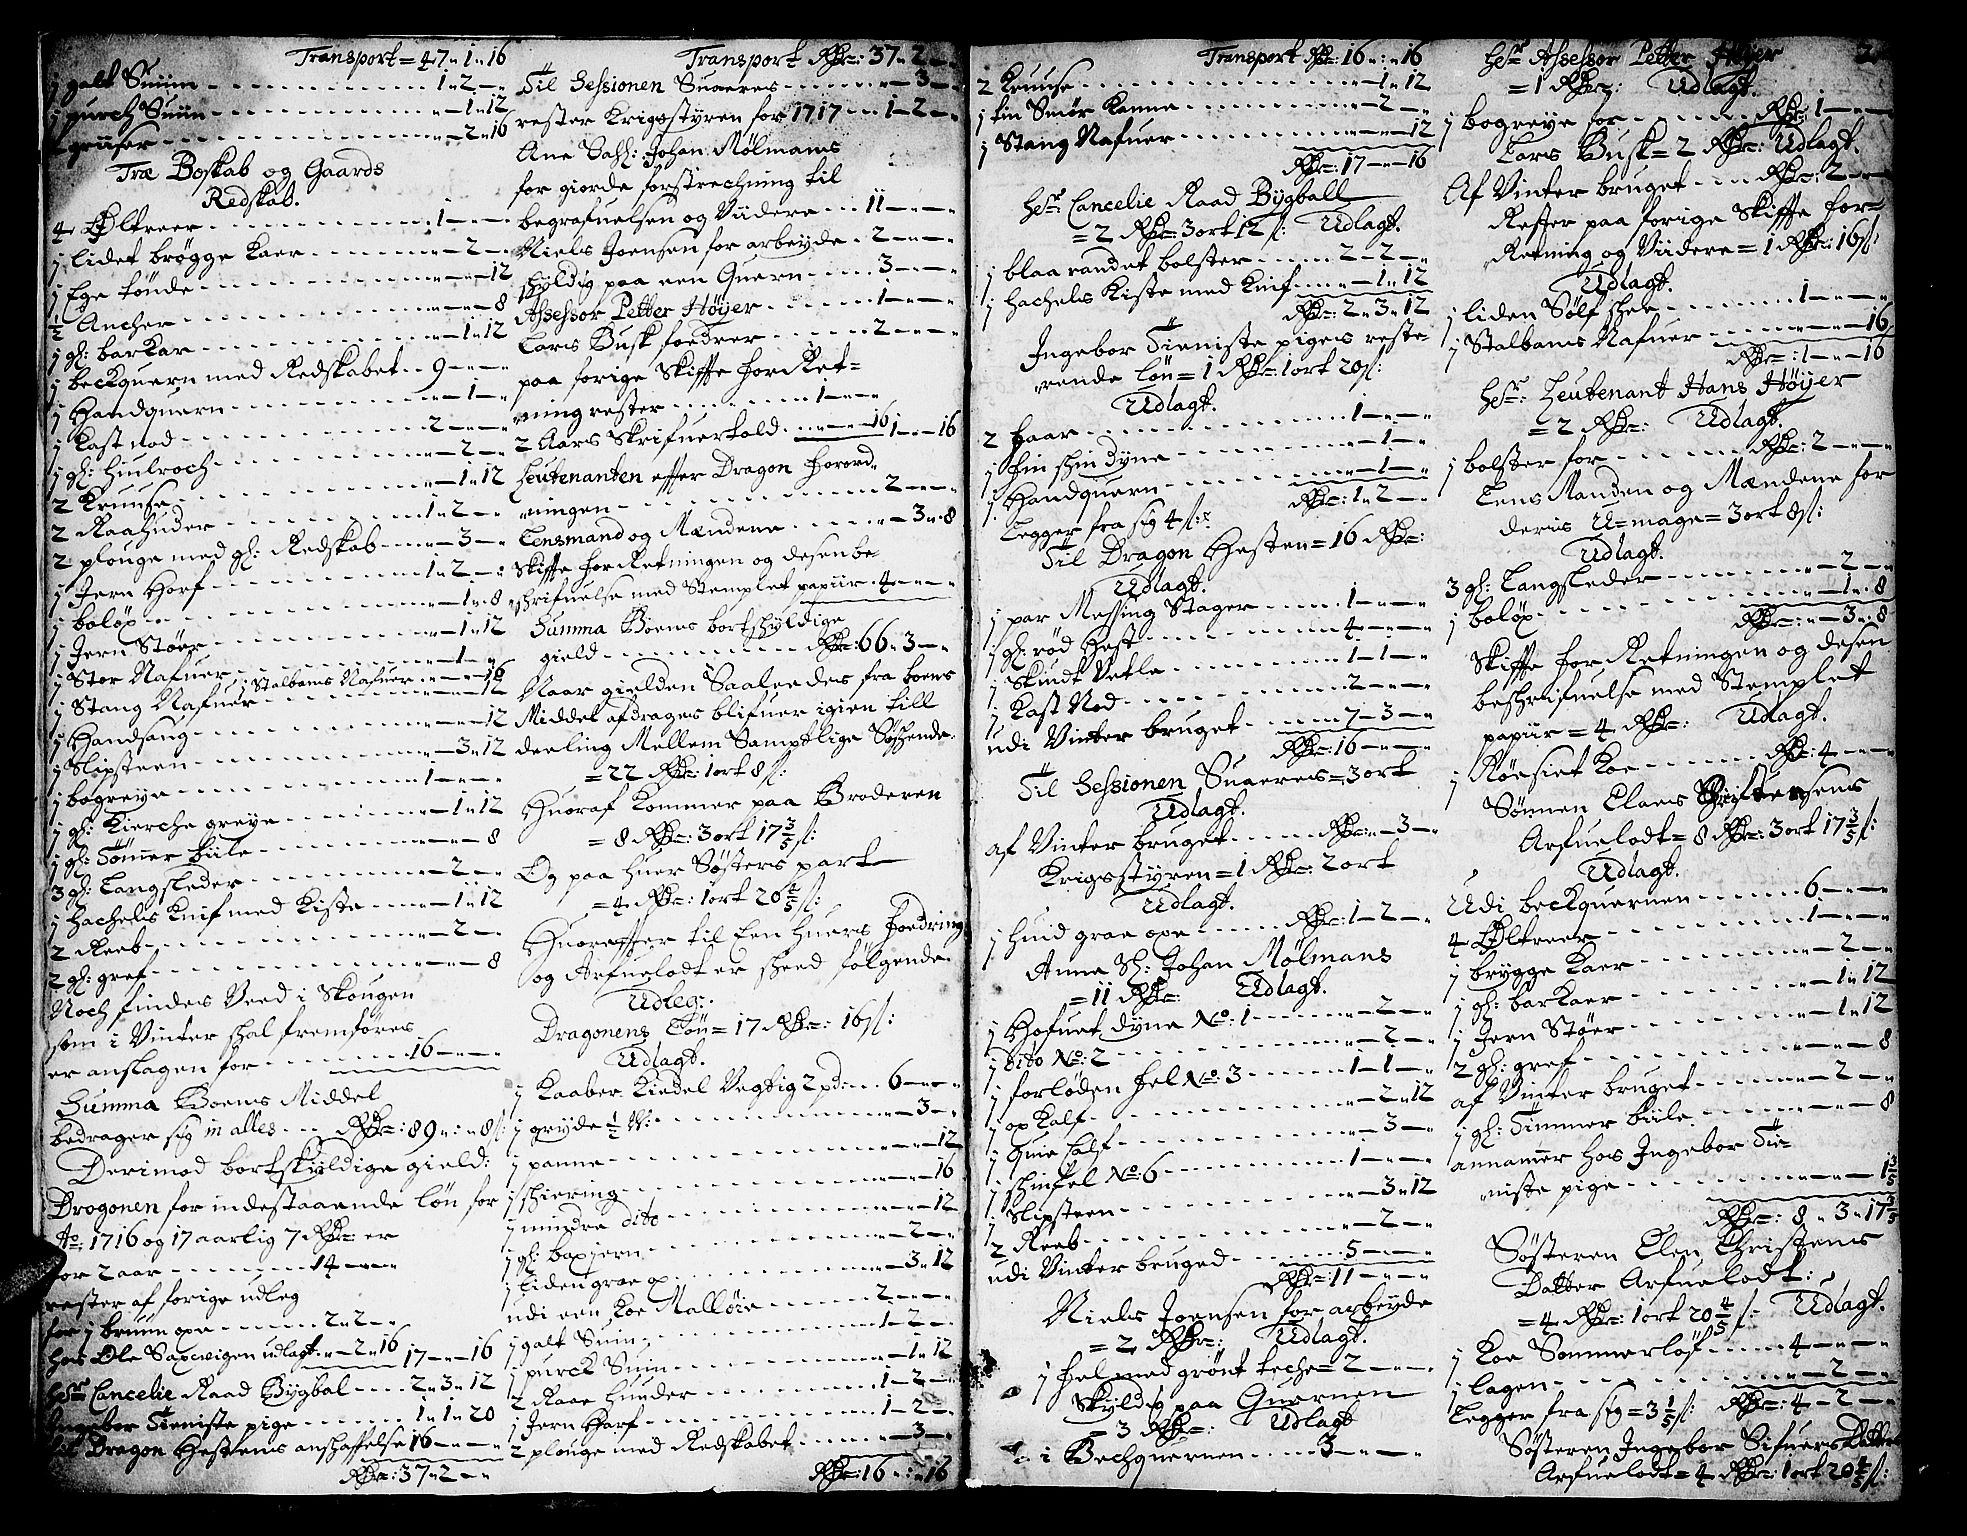 Transport = 47 „ 1 „ 16
j galt Suiin - - - 1 „ 2 — „
j purch Suiin - - - „ — 1 „ 12
2 griiser - - - „ — 2 „ 16
Træ Boskab og Gaards
Redskab.
4 Øltreer - - - 1 — „ — „
j lidet brøgge Kaer - - - „ — 2 — „
j Ege tønde - - - „ — „ — 12
½ Ancher - - - „ — „ — 8
j gl: barkar - - - „ — 1 „ 12
j beckquern med Redskabet - - 9 — „ — „
j Handquern - - - „ — 1 — „
j Kast nod - - - 2 — „ — „
j gl: Hiulroch - - - „ — 2 — „
2 Kruuse - - - „ — 1 „ 12
2 Raahuder - - - 1 „ 2 — „
2 plouge med gl: Redskab - - - „ — 3 — „
j Jern Horf - - - 1 „ 2 — „
j boløx - - - „ — 1 „ 8
j Jern Støer - - - „ — 1 „ 12
j Stor Nafuer - - - „ — 1 — „
j Stalbams Nafuer - - - „ — „ — 16
j Stang Nafuer - - - „ — „ — 12
j Handsaug - - - „ — „ — 12
j Slipsteen - - - „ — 3 „ 12
j bogreye - - - 1 — „ — „
j gl: Kierche greye - - - „ — 1 „ 12
j gl: Tømer biile - - - „ — „ — 8
3 gl: Langsleder - - - „ — 2 — „
j hachels Knif med Kiste - - - „ — 1 „ 12
2 Reeb - - - „ — 2 — „
2 gl: gref - - - „ — „ — 8
Noch findes Veed i Skougen
som i Vinter skal fremføres
er anslagen for - - - 16 — „ — „
Summa Boens Middel
bedrager sig in alles - - - Rdr: 89 „ : „ 8 s:
Derimod bortskyldige gield:
Drogonen for indestaaende løn for
Ao: 1716 og 17 aarlig 7 Rdr: er
for 2 aar - - - 14 — „ — „
rester af forige udleg
for j bruun oxe - - - 2 „ 2 — „
hos Ole Saxevigen udlagt „ — 2 „ 16
17 — „ — 16
Hr: Cancelie Raad Bygbal - - - 2 „ 3 „ 12
Ingebor Tieniste pige - - - 1 „ 1 „ 20
Til Dragon Hestens anshaffelse 16 — „ — „
Rdr: 37 „ 2 — „
Transport Rdr: 37 „ 2 — „
Til Sessionen Suaeres - - - „ — 3 — „
rester Krigsstyren for 1717 - - - 1 — 2 — „
Ane Sahl: Johan Mølmans
for giorde forstrechning til
begrafuelsen og Viidere - - - 11 — „ — „
Niels Joensen for arbeyde - 2 — „ — „
skyldig paa een Quern - - - 3 — „ — „
Assessor Petter Høyer - - - 1 — „ — „
Lars Busk foedrer - - - 2 — „ — „
paa forige Skiffte forRet=
ning rester - - - 1 — „ — „
2 Aars Skrifuertold - - - „ — „ — 16
1 — „ — 16
Leutenanten effter Dragon forord=
ningen - - - 2 — „ — „
Lensmand og Mændene - - - „ — 3 „ 8
Skiffte forRetningen og desen be
shrifuelse med Stemplet papiir - 4 — „ — „
Summa Boens bortshyldige
gield - - - Rdr: 66 „ 3 — „
Naar gielden Saaleedes fra boens
Middel afdrages blifuer igien till
deeling Mellem Samptlige Søshende
= 22 Rdr: 1 ort 8 s:
Huoraf Kommer paa Broderen
= 8 Rdr: 3 ort 17 3/5 s:
Og paa huer Søsters part
= 4 Rdr: 1 ort 20 4/5 s:
Huoreffter til Een huers foedring
og Arfuelodt er sheed følgende
Udleg:
Dragonens Løn = 17 Rdr: 16 s:
Udlagt.
j Kaaber Kiedel Vegtig 2 pd: - - 6 — „ — „
j gryde ½ W: - - - „ — 3 — „
j panne - - - „ — „ — 12
j shiering - - - „ — „ — 16
j mindre dito - - - „ — „ — 12
j gl: baxjern - - - „ — 2 — „
j liden grae ox - - - „ — 3 „ 12
udi een Koe Malløie - - - 2 — „ — „
j galt Suiin - - - 1 — 2 — „
j purck Suin - - - „ — 1 „ 12
2 Raae huuder - - - 1 — 2 — „
j Jern Harf - - - 1 — 2 — „
2 plouge med Redskabet - - - „ — 3 — „
Rdr: 16 „ : „ 16
Transport Rdr: 16 „ : „ 16
2 Kruuse - - - „ — 1 „ 12
j tin Smør Kanne - - - „ — 2 — „
j Stang Nafuer - - - „ — „ — 12
Rdr: 17 — „ — 16
Hr: Cancelie Raad Bygball
= 2 Rdr: 3 ort 12 s: Udlagt.
j blaa randet bolster - - - 2 — 2 — „
j hachels Kiste med Knif - - - „ — 1 „ 12
Rdr: 2 „ 3 „ 12
Ingebor Tieniste piges reste=
rende løn = 1 Rdr: 1 ort 20 s:
Udlagt.
2 haar - - - 1 — „ — „
j fin shin dyne - - - „ — 1 — „
j Handquern - - - „ — 1 — „
Legger fra sig 4 s: Rdr: 1 „ 2 — „
Til Dragon Hesten = 16 Rdr:
Udlagt.
j par Messing Stager - - - 1 — „ — „
j gl: rød Hest - - - 4 — „ — „
j Skindt Vetle - - - 1 — 1 — „
j Kast Nod - - - 2 — „ — „
udi Vinter bruget - - - 7 — 3 — „
Rdr: 16 — „ — „
Til Sessionen Suaeres = 3 ort
Udlagt.
af Vinter bruget - - - Rdr: „ — 3 — „
Krigsstyren = 1 Rdr: 2 ort
Udlagt.
j huid grae oxe - - - Rdr: 1 — 2 — „
Anne Sl: Johan Mølmans
= 11 Rdr: Udlagt.
j Hofuet dyne No: 1 - - - „ — 2 — „
j dito No: 2 - - - „ — 2 — „
j forløden fel No: 3 - - - 1 — 1 — „
j ox Kalf - - - „ — 2 „ 12
j Quie Kalf - - - „ — 3 — „
j shinfel No: 6 - - - 1 — „ — „
j Slipsteen - - - „ — 3 „ 12
2 Reeb - - - „ — 2 — „
udi Vinter bruged - - - 5 — „ — „
Rdr: 11 — „ — „
Niels Joensen for arbeyde
= 2 Rdr: Udlagt.
j fel med grønt teche = 2 — „ — „
Skyldig paa Quernen
= 3 Rdr: Udlagt
i Bechquernen - - - 3 — „ — „
Hr: Assessor Petter Høyer
= 1 Rdr: Udlagt.
j bogreye for - - - Rdr: 1 — „ — „
Lars Busk = 2 Rdr: Udlagt.
Af Vinter bruget - - - Rdr: 2 — „ — „
Rester paa forige Skiffte for=
Retning og Viidere = 1 Rdr: 16 s:
Udlagt.
j liden Sølf shee - - - 1 — „ — „
j Stalbams Nafuer - - - „ — „ — 16
Rdr: 1 — „ — 16
Hr: Leutenant Hans Høyer
= 2 Rdr: Udlagt.
j bolster for - - - Rdr: 2 — „ — „
Lens Manden og Mændene for
deris U=mage = 3 ort 8 s:
Udlagt.
3 gl: Langsleder - - - „ — 2 — „
j boløx - - - „ — 1 „ 8
Rdr: „ — 3 „ 8
Skiffte for Retningen og desen
beshrifuelse med Stemplet
papiir = 4 Rdr: Udlagt.
j Røesiet Koe - - - Rdr: 4 — „ — „
Sønnen Claes Christensens
Arfuelodt = 8 Rdr: 3 ort 17 3/5 s:
Udlagt.
Udi beckquernen - - - 6 — „ — „
4 Øltreer - - - 1 — „ — „
j brygge Kaer - - - „ — 2 — „
j gl: bar Kaer - - - „ — 1 „ 12
j Jern Støer - - - „ — 1 „ 12
2 gl: gref - - - „ — „ — 8
af Vinter bruget - - - „ — 2 — „
j gl: Timmer biile - - - „ — „ — 8
annamer hos Ingebor Tie=
niste pige - - - „ — „ — 1 3/5
Rdr: 8 „ 3 „ 17 3/5
Søsteren Elen Christens
Datter Arfuelodt:
= 4 Rdr: 1 ort 20 4/5 s: Udlagt.
j Koe Sommerløf - - - 4 — „ — „
j lagen - - - „ — 2 — „
Legger fra sig = 3 1/5 s: Rdr: 4 — 2 — „
Søsteren Ingebor Sifuers Datter
Arfuelodt = 4 Rdr: 1 ort 20 4/5 s: